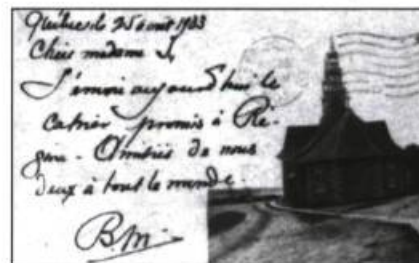 Québec le 25 août 1903
Chère madame L,
J'envoie aujourd'hui le
cahier promis à Ré-
gine. Amitiés de nous
deux à tout le monde.
B.M.